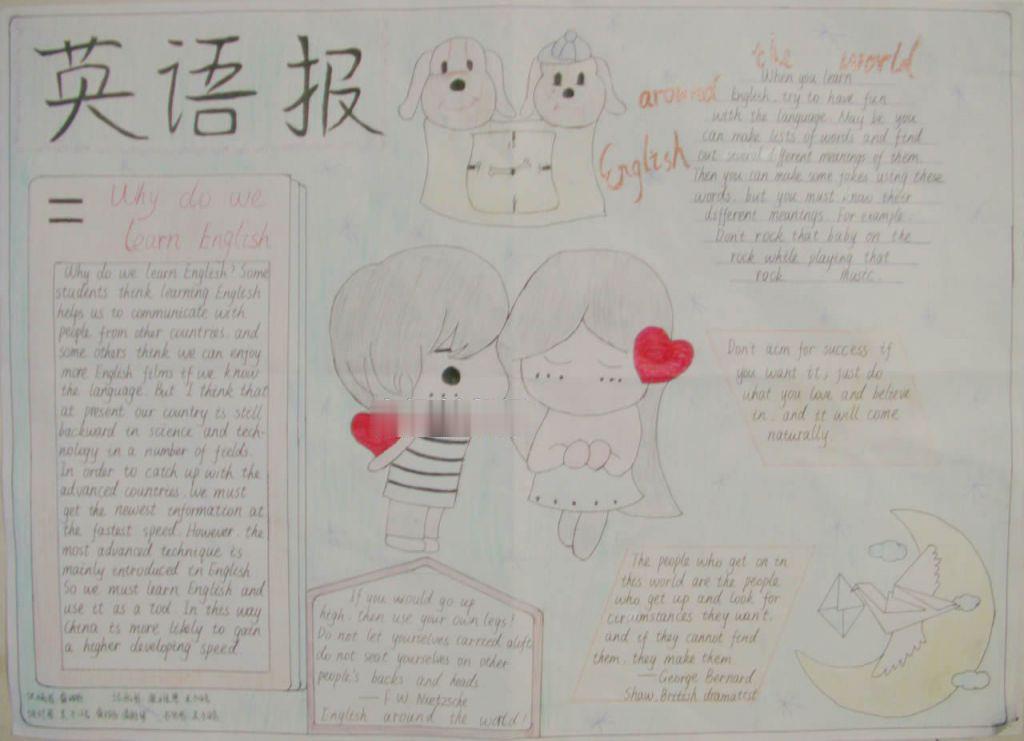 英语报
Why do we
learn English
Why do we learn English? Some
students think learning English
helps us to communicate with
people from other countries. and
some others think we can enjoy
more English films if we know
the language. But I think that
at present our country is still
backward in science and tech-
nology in a number of fields.
In order to catch up with the
advanced countries. We must
get the newest information at
the fastest speed. However. the
most advanced technique is
mainly introduced in English.
So we must learn English and
use it as a tool. In this way
China is more likely to gain
a higher developing speed.
English around the world
When you learn
English. try to have fun
with the language. May be you
can make lists of words and find
out several different meanings of them.
Then you can make some jokes using these
words. but you must know their
different meanings. For example.
Don't rock that baby on the
rock while playing that
rock music.
Don't aim for success if
you want it; just do
what you love and believe
in. and it will come
naturally.
If you would go up
high. then use your own legs!
Do not let yourselves carried aloft.
do not seat yourselves on other
people's backs and heads
— F. W. Nietzsche
English around the world!
The people who get on in
this world are the people
who get up and look for
circumstances they want.
and if they cannot find
them. they make them
— George Bernard
Shaw. British dramatist